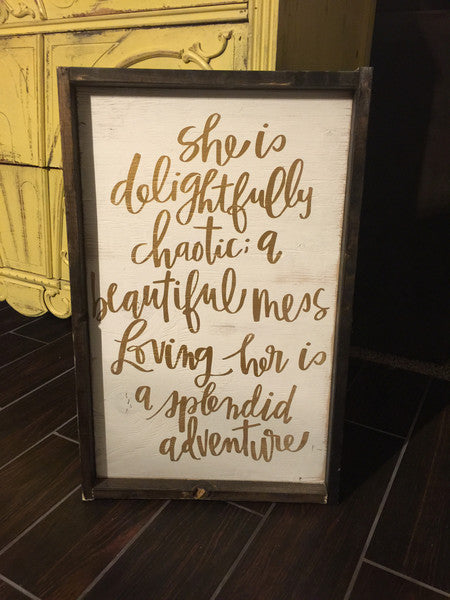 She is
delightfully
chaotic; a
beautiful mess
Loving her is
a splendid
adventure